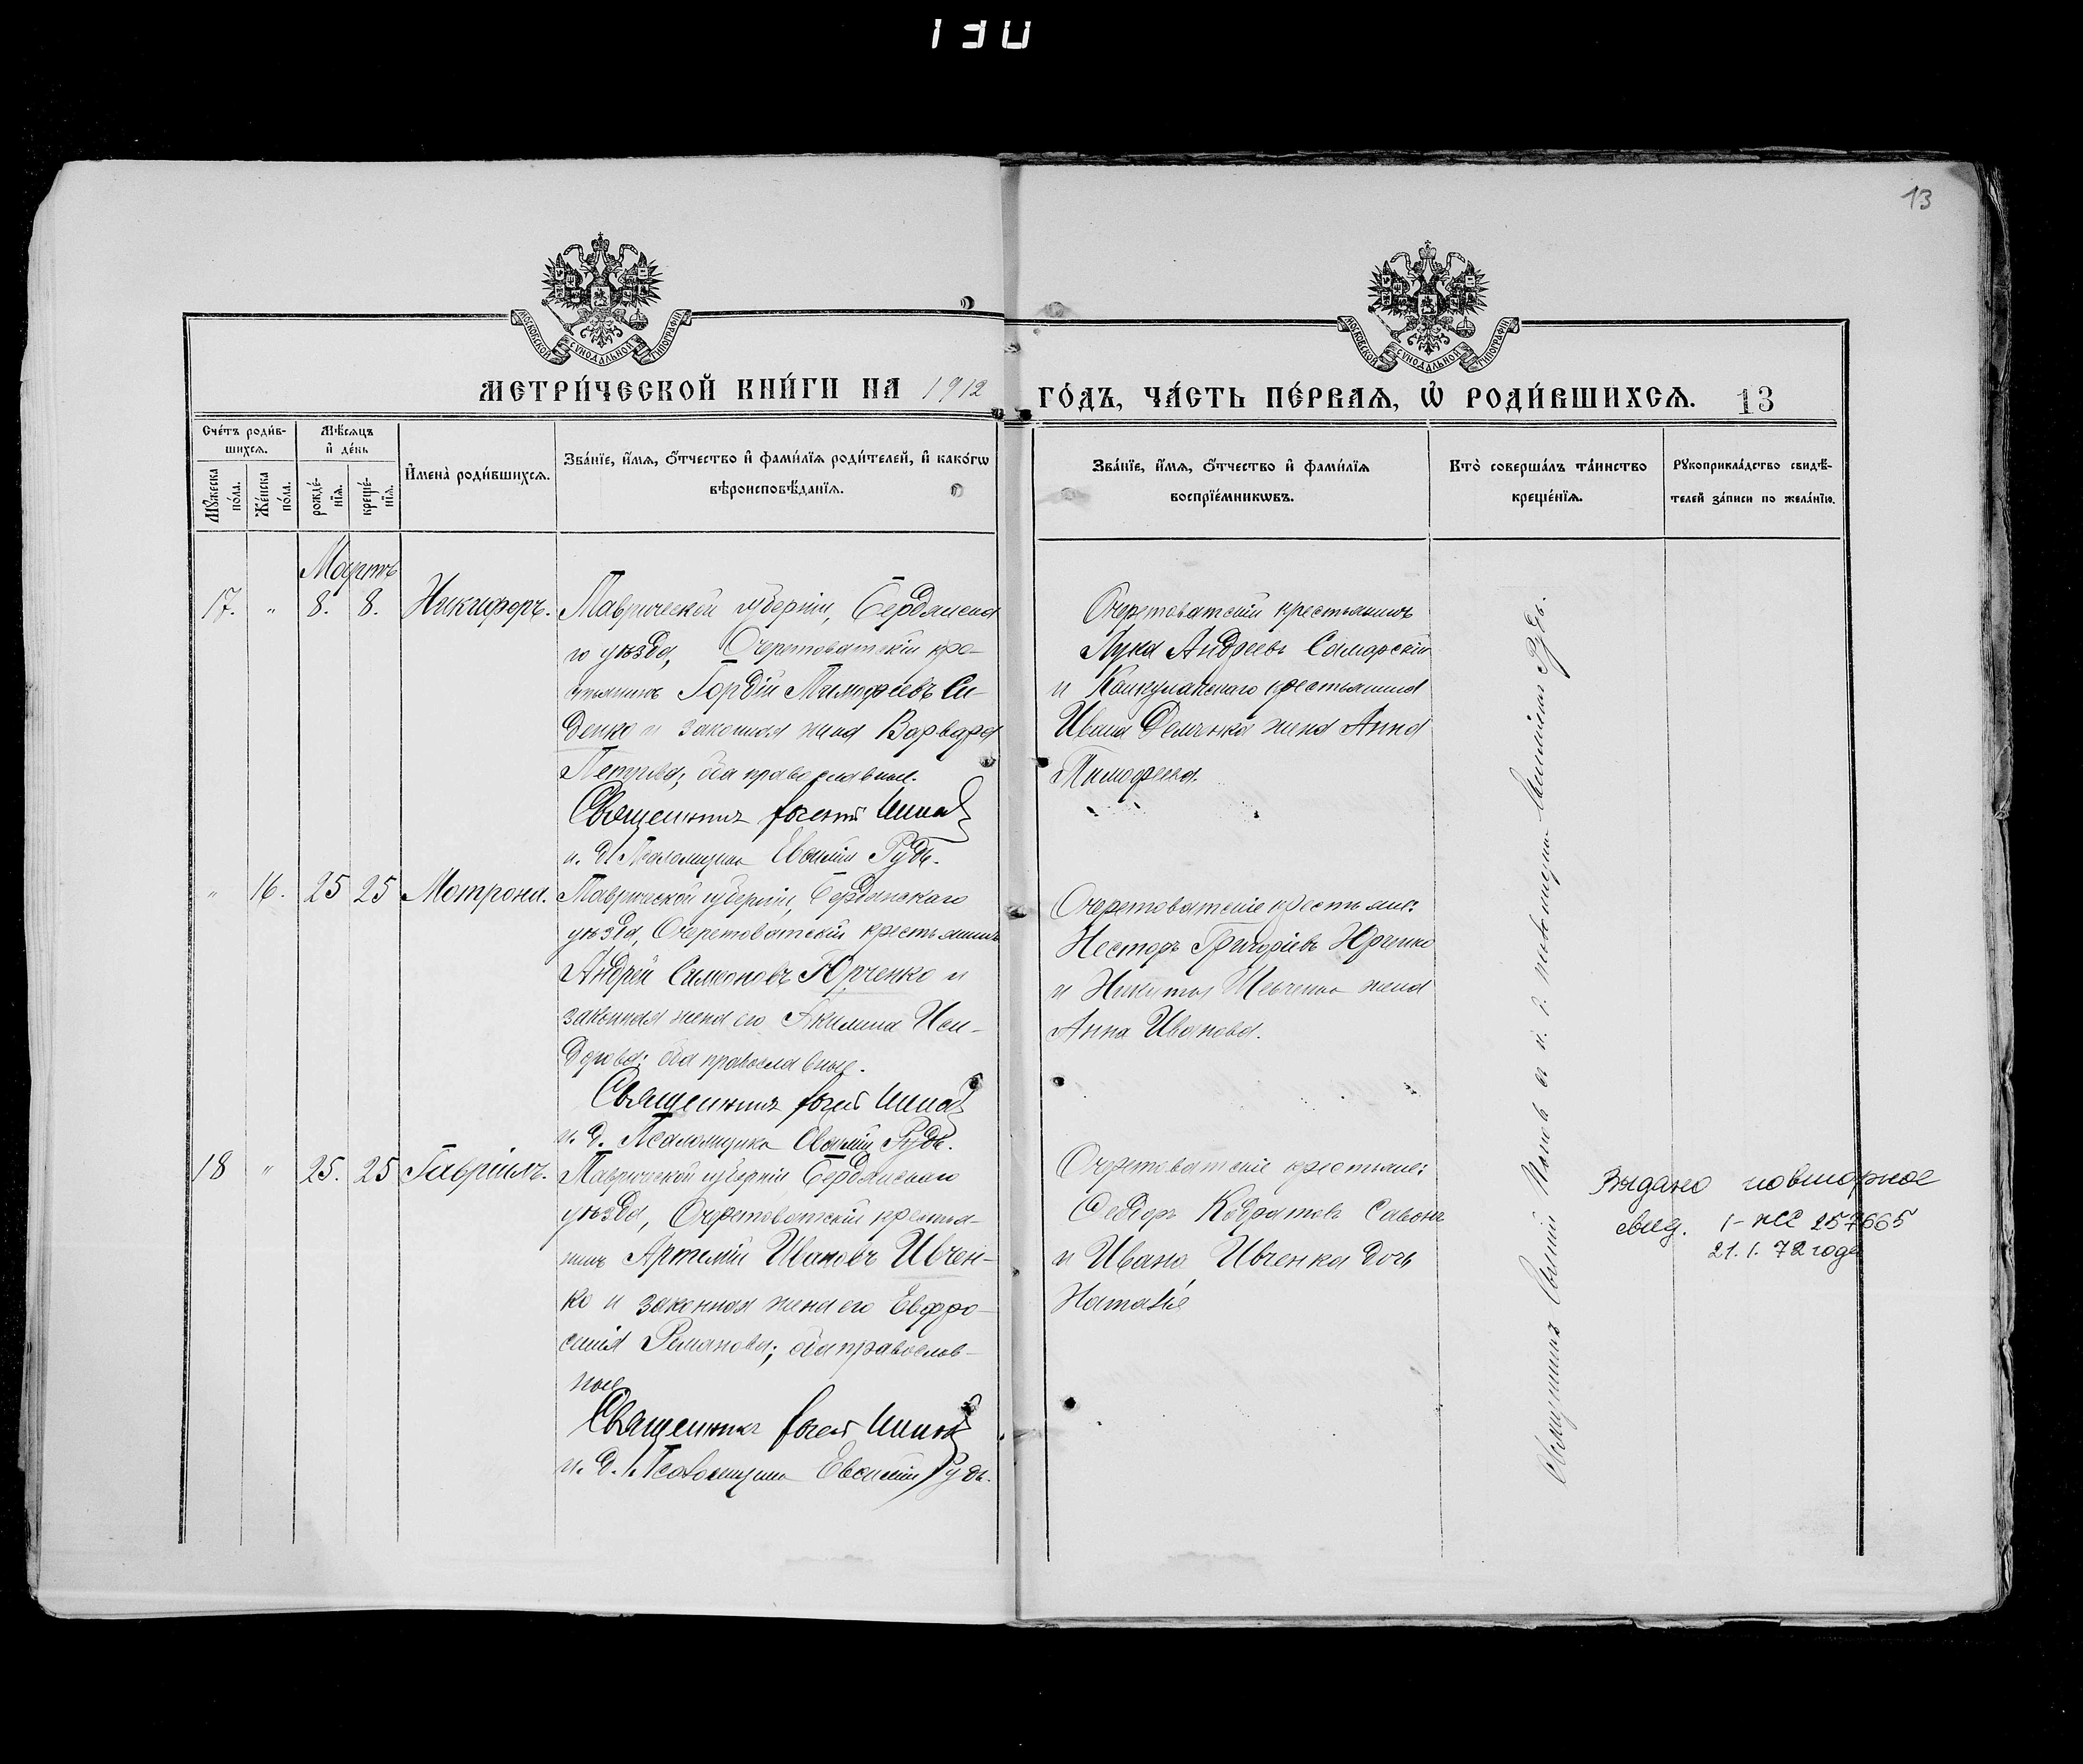 130
13
МОСКОВСКОЙ СѴНОДАЛЬНОЙ ТИПОГРАФІИ
МОСКОВСКОЙ СѴНОДАЛЬНОЙ ТИПОГРАФІИ
МЕТРИ́ЧЕСКОЙ КНИ́ГИ НА 1912
ГО́ДЪ, ЧА́СТЬ ПЕ́РВАѦ, Ѡ҆ РОДИ́ВШИХСѦ. 13
Сче́тъ роди́в-
шихсѧ.
Мꙋ́жеска по́ла.
Же́нска по́ла.
Мѣ́сѧцъ
и҆ де́нь
рожде́-
нїѧ.
креще́-
нїѧ.
И҆мена̀ роди́вшихсѧ.
Зва́нїе, и҆́мѧ, ѻ҆́тчество и҆ фами́лїѧ роди́телей, и҆ како́гѡ
вѣроисповѣ́данїѧ.
Зва́нїе, и҆́мѧ, ѻ҆́тчество и҆ фами́лїѧ
воспрїе́мникѡвъ.
Кто̀ соверша́лъ та́инство
креще́нїѧ.
Рꙋкоприкла́дство свидѣ́-
телей за́писи по жела́нїю.
Мартъ
17. " 8. 8. Никифоръ.
Таврической губерніи, Бердянска
го уѣзда, Очеретоватскій кре-
стьянинъ Гордій Тимофеевъ Си-
денко и законная жена Варвара
Петрова; оба православные.
Священникъ
и. д. Псаломщика Евфимій Рудь.
Очеретоватскій крестьянинъ
Лука Андреевъ Самарскій
и крестьянина
Ивана Демченка жена Анна
Тимофеева.
" 16. 25 25 Мотрона.
Таврической губерніи, Бердянскаго
уѣзда, Очеретоватскій крестьянинъ
Андрей Симоновъ Юрченко и
законная жена его Акилина Иси-
дорова; оба православные.
Священникъ
и. д. Псаломщика Евфимій Рудь.
Очеретоватскіе крестьяне:
Несторъ Григоріевъ Юрченко
и Никиты Шевченка жена
Анна Иванова.
18 " 25. 25 Гавріилъ.
Таврической губерніи Бердянскаго
уѣзда, Очеретоватскій крестья-
нинъ Артемій Ивановъ Ивчен-
ко и законная жена его Евфро-
синія Романова; оба православ-
ные
Священникъ
и. д. Псаломщика Евфимій Рудь.
Очеретоватскіе крестьяне:
Феодоръ Савонъ
и Ивана Ивченка дочь
Наталія
Священникъ и и. д. псаломщика Рудь.
Выдано повторное
свид. 1-ЖС 257665
21. 1. 72 года